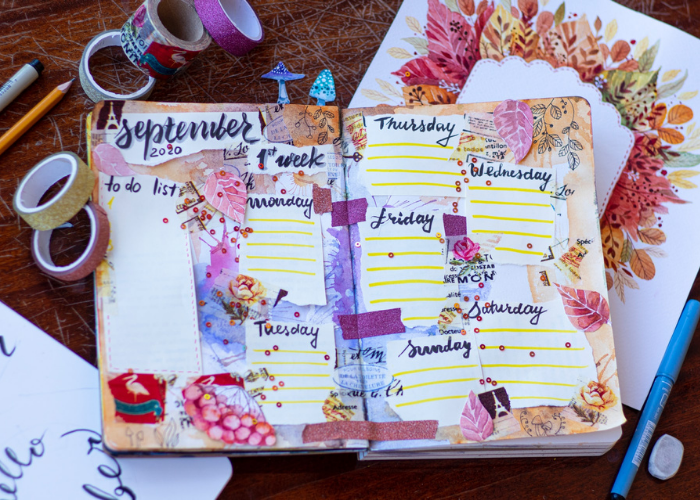 september
2020
1st week
to do list
monday
Tuesday
Thursday
Wednesday
friday
Saturday
sunday
MON
Adresse